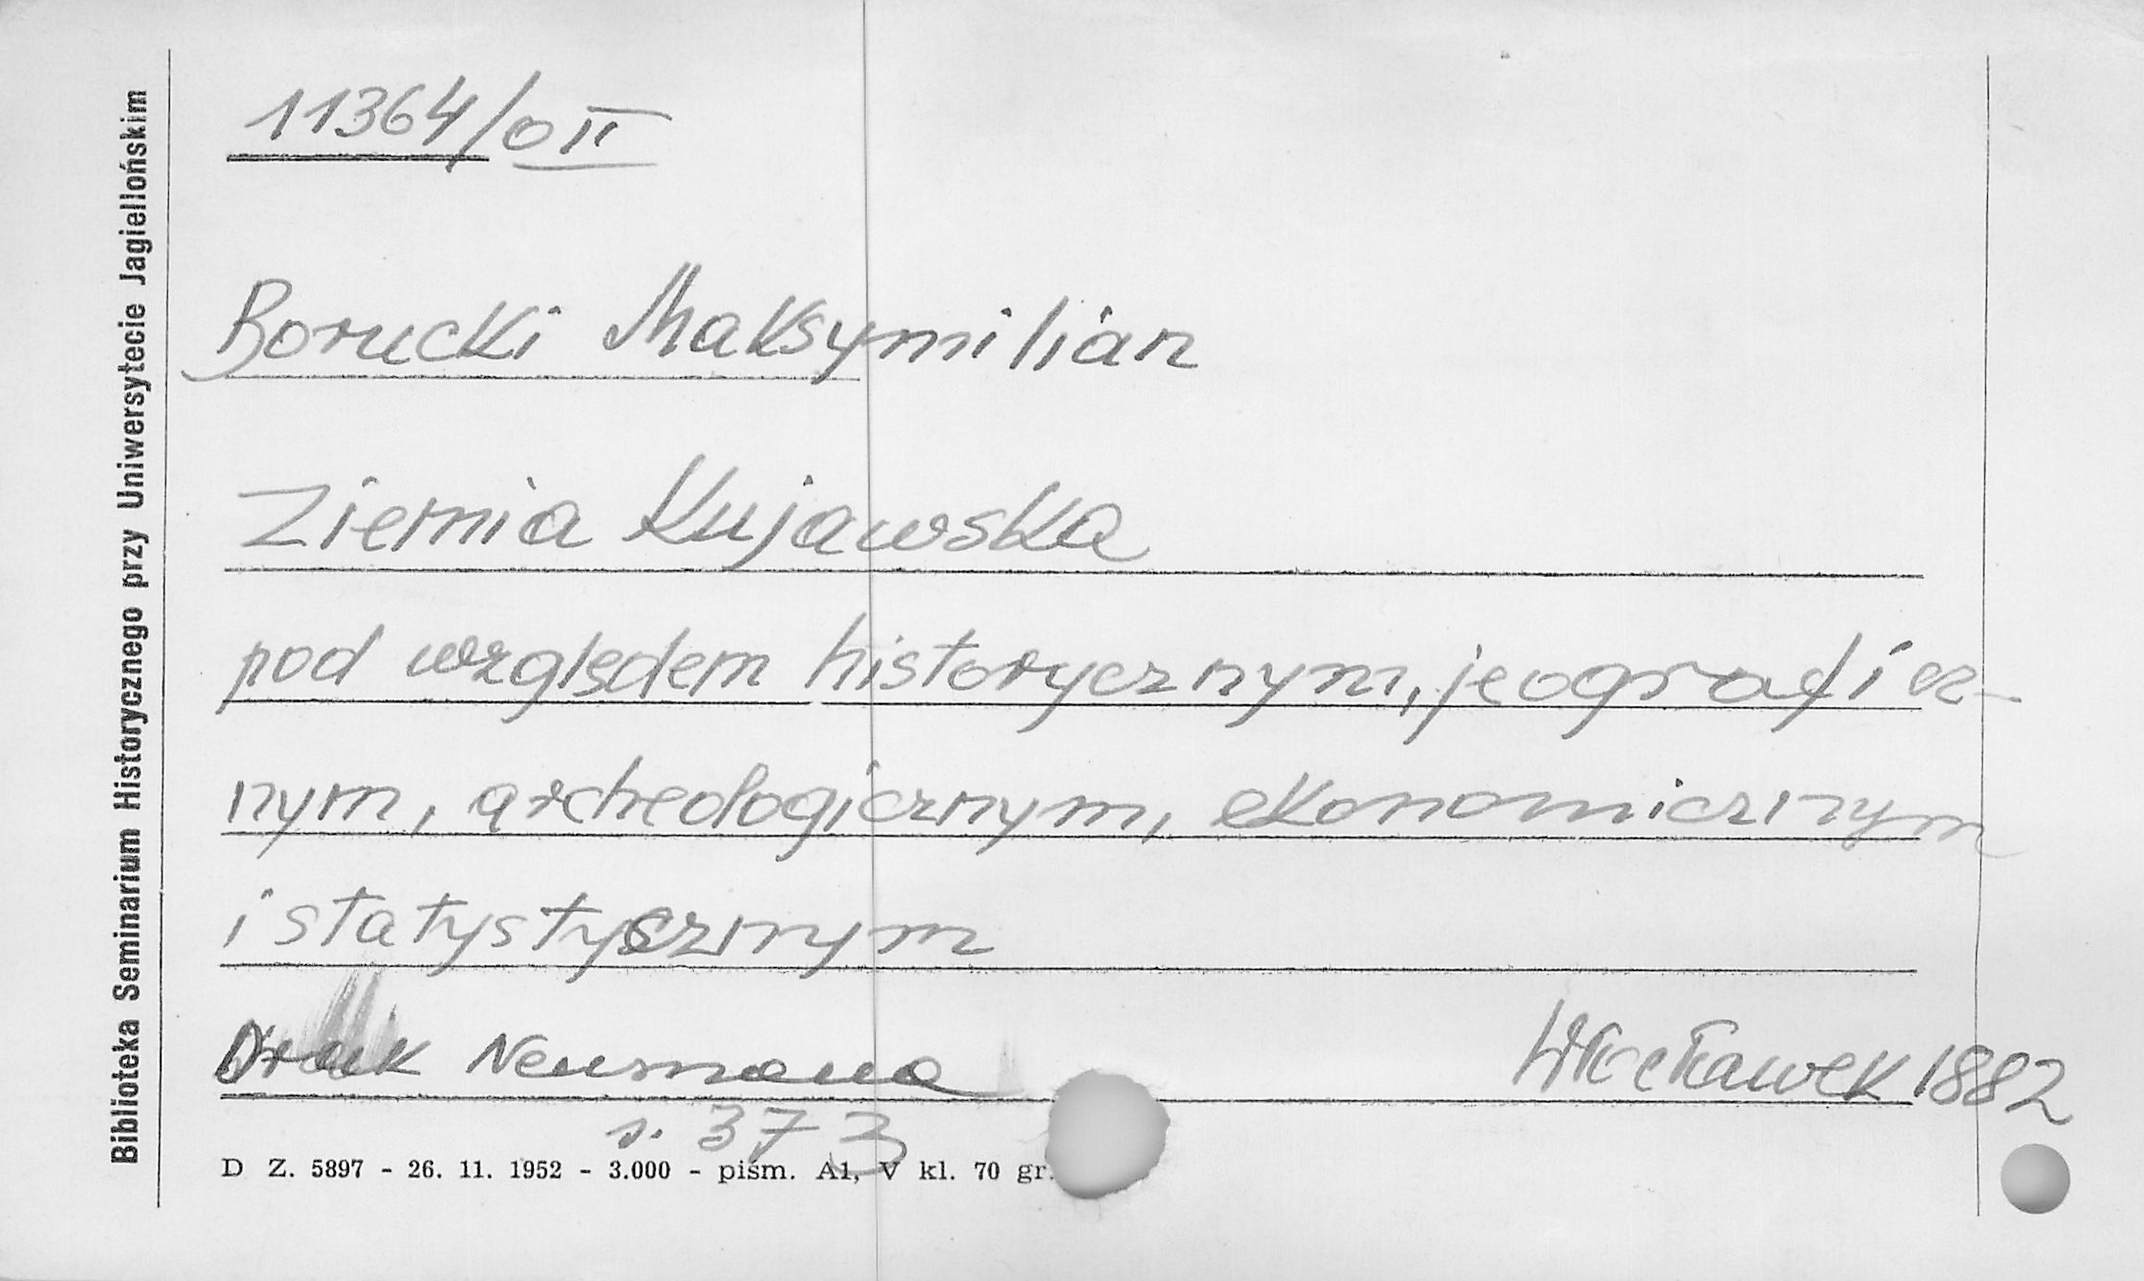 Biblioteka Seminarium Historycznego przy Uniwersytecie Jagiellońskim
11364/O II
Borucki Maksymilian
Ziemia Kujawska
pod względem historycznym, jeograficz-
nym, archeologicznym, ekonomicznym
i statystycznym
Druk Neumana Włocławek 1882
s. 373
D Z. 5897 - 26. 11. 1952 - 3.000 - piśm. A1, V kl. 70 gr.